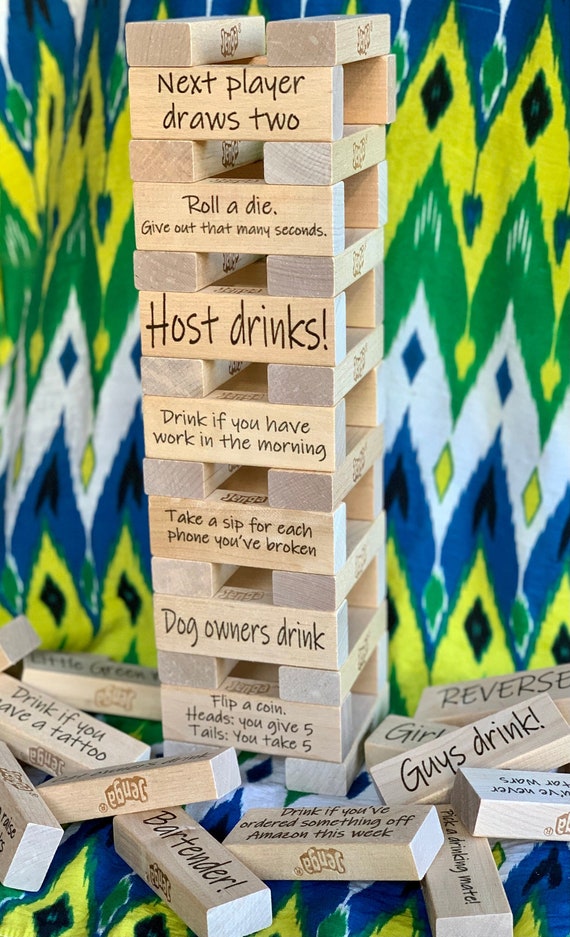 Jenga
Jenga
Next player
draws two
Jenga
Jenga
Roll a die.
Give out that many seconds.
Host drinks!
Drink if you have
work in the morning
Jenga
Take a sip for each
phone you've broken
Jenga
Dog owners drink
Jenga
Flip a coin.
Heads: you give 5
Tails: You take 5
Little Green
Jenga
Drink if you
have a tattoo
Jenga
Jenga
Jenga
Bartender!
Jenga
Drink if you've
ordered something off
Amazon this week
Jenga
REVERSE
Guys drink!
you've never
Star Wars
Jenga
Pick a drinking mate!